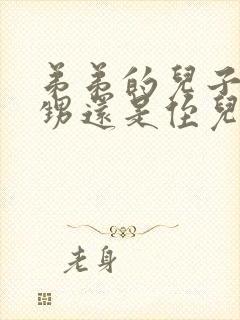 弟弟的兒子
甥還是侄兒
老身